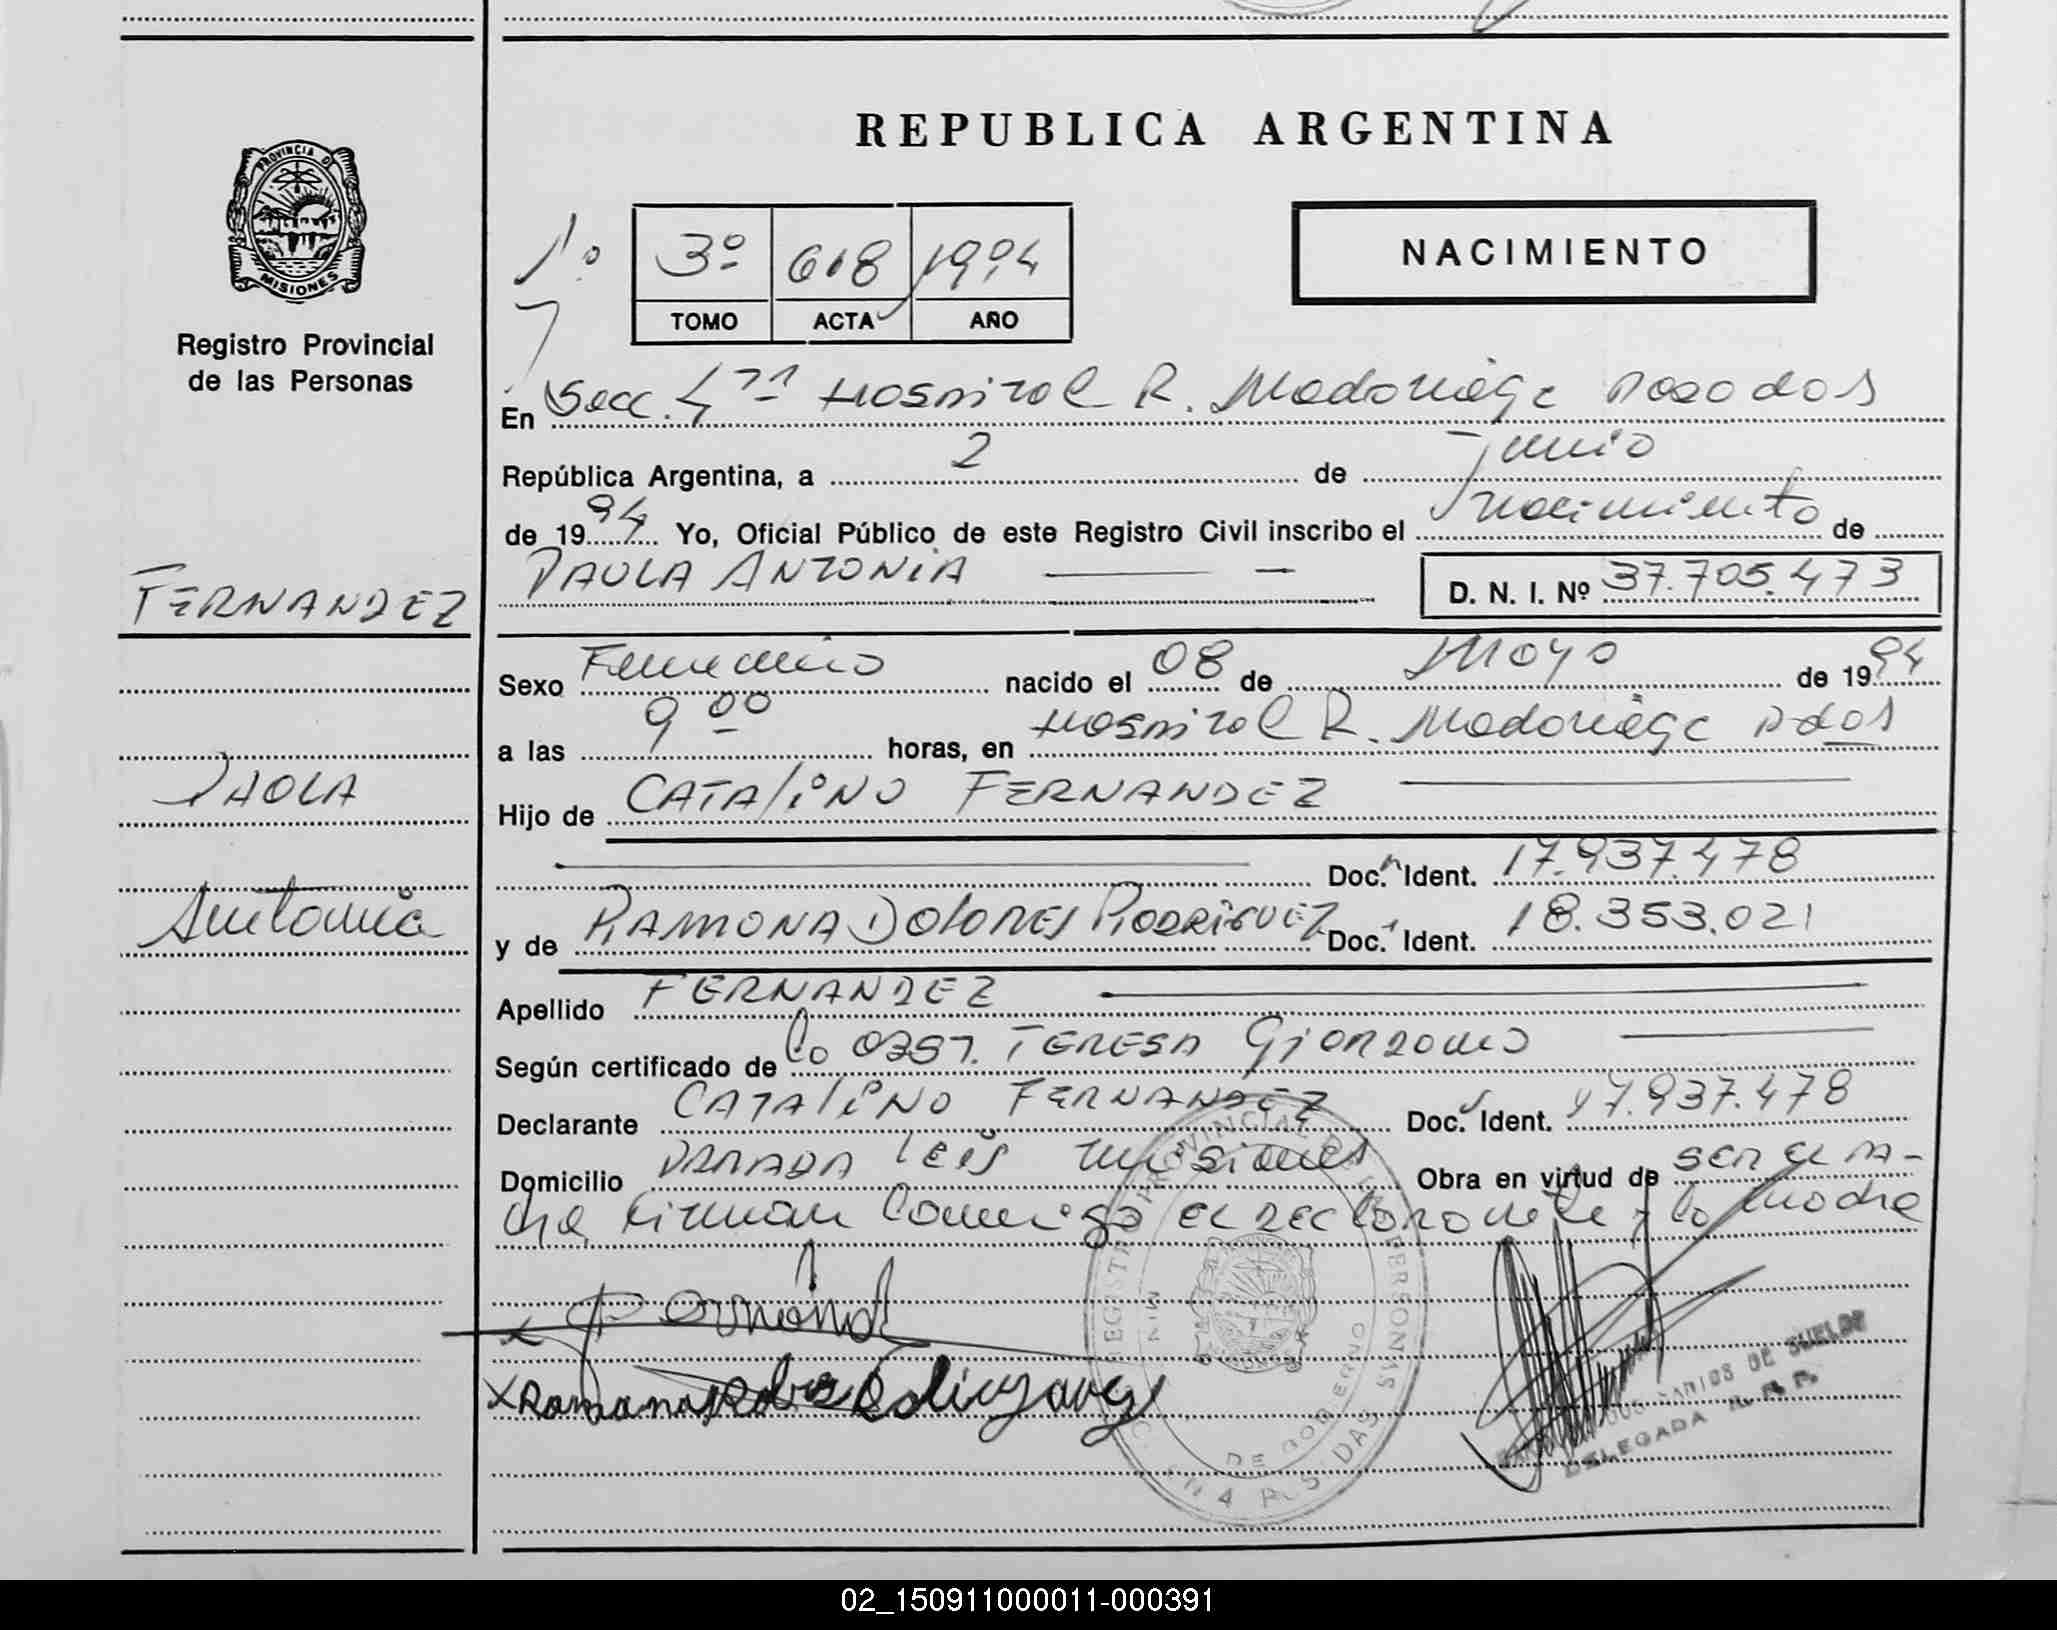 REPUBLICA ARGENTINA
PROVINCIA D
MISIONES
Registro Provincial
de las Personas
1º 3º 618 1994
TOMO ACTA AÑO
NACIMIENTO
En Secc. 4ª Hospital R. Madariaga Posadas
República Argentina, a 2 de Junio
de 1994 Yo, Oficial Público de este Registro Civil inscribo el nacimiento de
PAOLA ANTONIA D. N. I. Nº 37.705.473
FERNANDEZ
Sexo Femenino nacido el 08 de Mayo de 1994
a las 9 00 horas, en Hospital R. Madariaga Pdas
PAOLA
Hijo de CATALINO FERNANDEZ
Doc. Ident. 17.937.478
Antonia
y de RAMONA DOLORES RODRIGUEZ Doc. Ident. 18.353.021
Apellido FERNANDEZ
Según certificado de la OBST. TERESA Giordano
Declarante CATALINO FERNANDEZ Doc. Ident. 17.937.478
Domicilio PARADA Leis Misiones Obra en virtud de ser el PA-
dre, Firman Conmigo el declarante y la madre
REGISTRO PROVINCIAL DE LAS PERSONAS
MIN DE GOBIERNO
POSADAS
DELEGADA R. P. P.
02_150911000011-000391